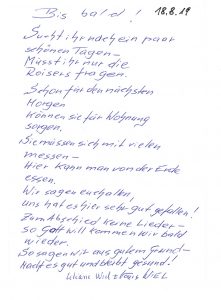 Bis bald! 18.8.19
Sucht ihr noch ein paar
schönen Tagen -
Müsst ihr nur die
Roisers fragen.
Schon für den nächsten
Morgen
können sie für Wohnung
sorgen.
Sie müssen sich mit vielen
messen -
Hier kann man von der Erde
essen.
Wir sagen euch allen,
uns hat es hier sehr gut gefallen!
Zum Abschied keine Lieder -
so Gott will kommen wir bald
wieder.
So sagen wir aus gutem Grund -
Macht es gut und bleibt gesund!
und